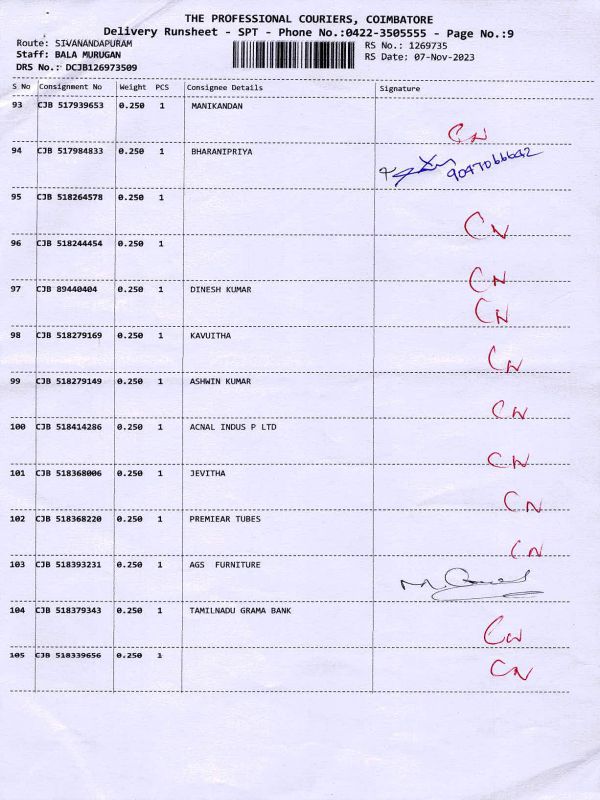 THE PROFESSIONAL COURIERS, COIMBATORE
Delivery Runsheet - SPT - Phone No.:0422-3505555 - Page No.:9
Route: SIVANANDAPURAM RS No.: 1269735
Staff: BALA MURUGAN RS Date: 07-Nov-2023
DRS No.: DCJB126973509
S No Consignment No Weight PCS Consignee Details Signature
93 CJB 517939653 0.250 1 MANIKANDAN
CN
94 CJB 517984833 0.250 1 BHARANIPRIYA
95 CJB 518264578 0.250 1
CN
96 CJB 518244454 0.250 1
CN
97 CJB 89440404 0.250 1 DINESH KUMAR
CN
98 CJB 518279169 0.250 1 KAVUITHA
CN
99 CJB 518279149 0.250 1 ASHWIN KUMAR
CN
100 CJB 518414286 0.250 1 ACNAL INDUS P LTD
CN
101 CJB 518368006 0.250 1 JEVITHA
CN
102 CJB 518368220 0.250 1 PREMIEAR TUBES
CN
103 CJB 518393231 0.250 1 AGS FURNITURE
104 CJB 518379343 0.250 1 TAMILNADU GRAMA BANK
CN
105 CJB 518339656 0.250 1
CN